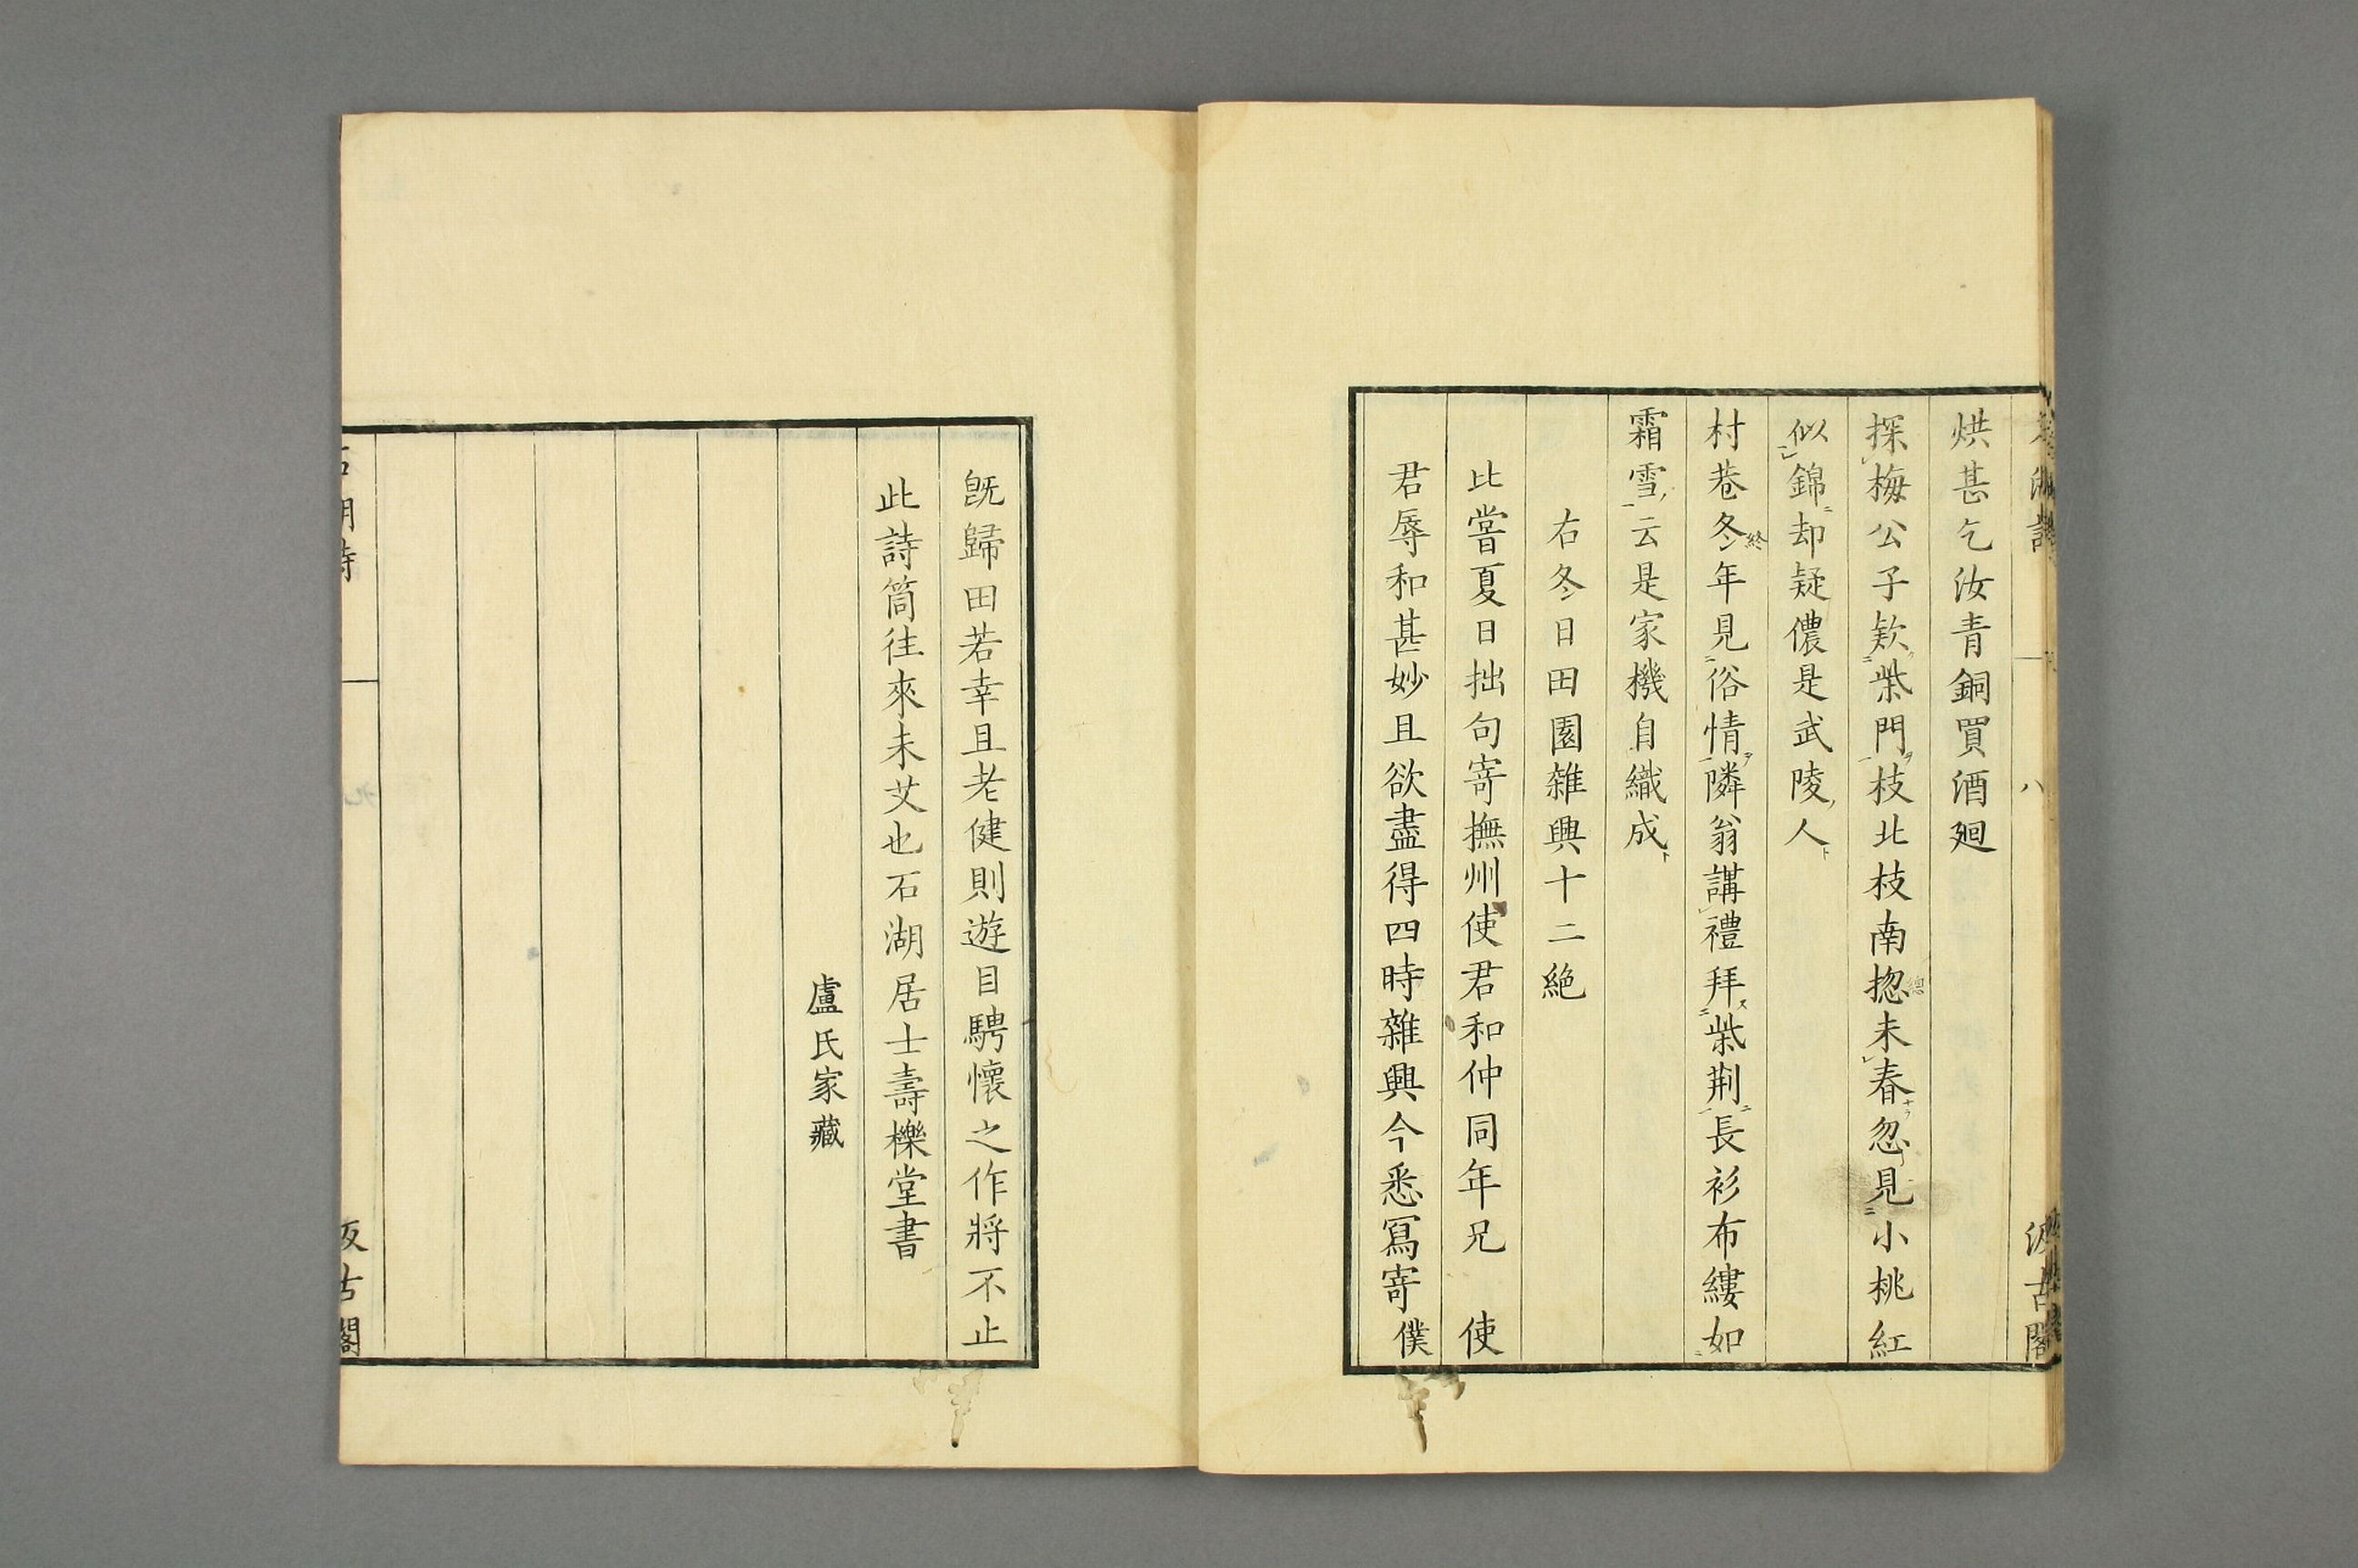 烘甚乞汝青銅買酒廻
探梅公子欵柴門枝北枝南揔未春忽見小桃紅
似錦却疑儂是武陵人
村巷冬年見俗情隣翁講禮拜柴荆長衫布縷如
霜雪云是家機自織成
右冬日田園雜興十二絶
比嘗夏日拙句寄撫州使君和仲同年兄　使
君辱和甚妙且欲盡得四時雜興今悉寫寄僕
旣歸田若幸且老健則遊目騁懷之作將不止
此詩筒往來未艾也石湖居士壽櫟堂書
盧氏家藏
八
汲古閣